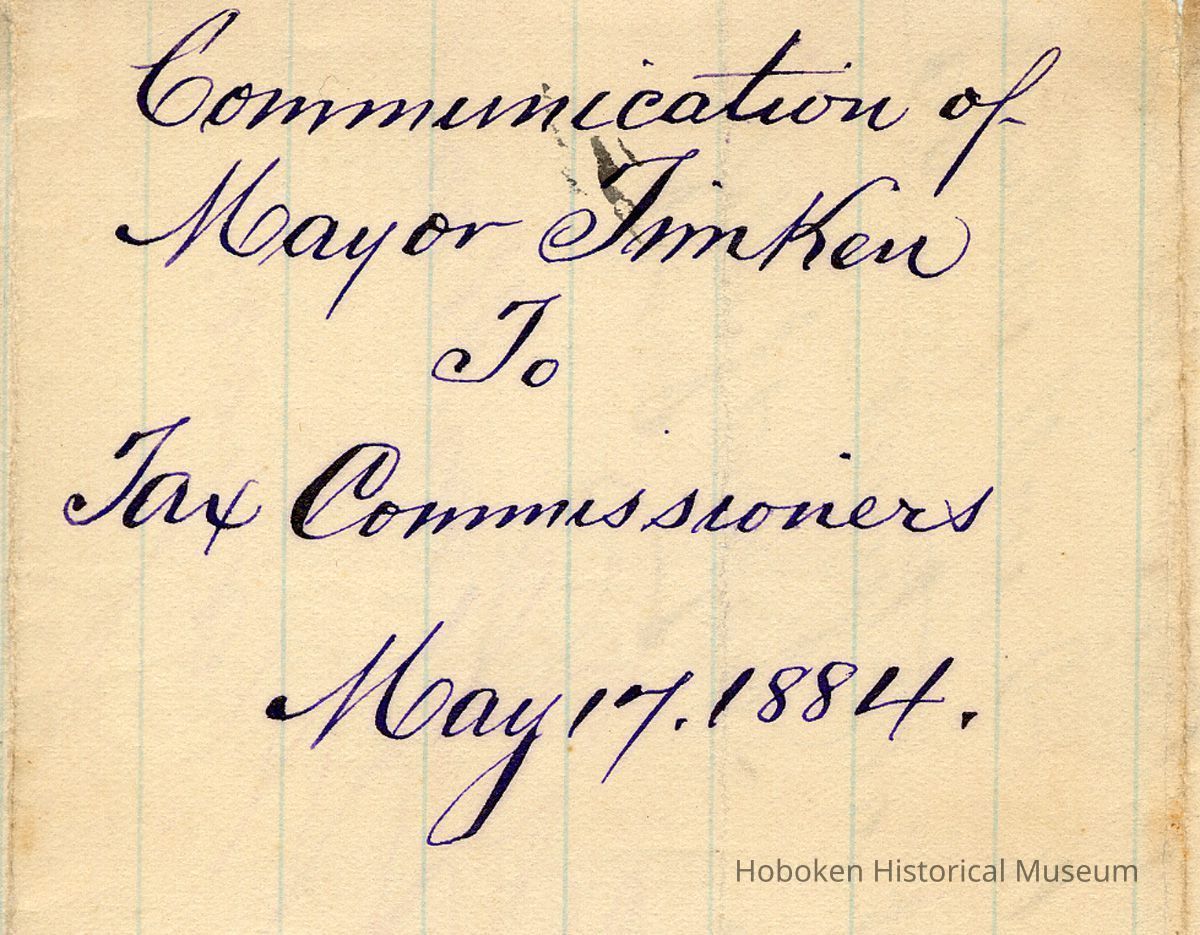 Communication of
Mayor Timken
To
Tax Commissioners
May 17. 1884.
Hoboken Historical Museum